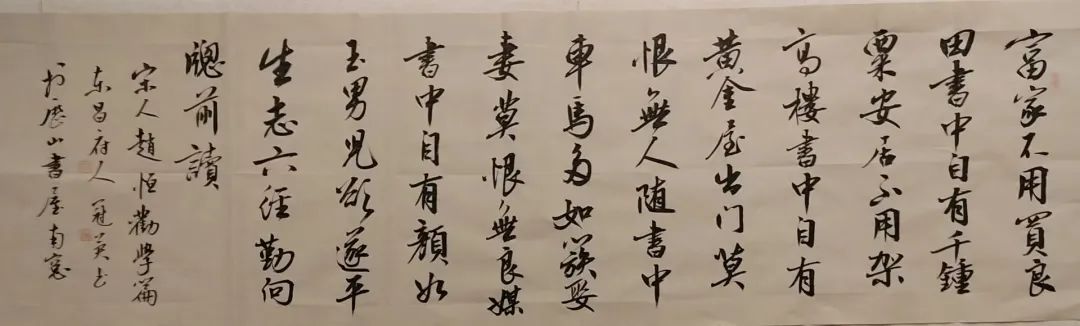 富家不用買良
田書中自有千鍾
粟安居不用架
高樓書中自有
黄金屋出门莫
恨無人随書中
車馬多如簇娶
妻莫恨無良媒
書中自有顏如
玉男兒欲遂平
生志六經勤向
牎前讀
宋人趙恒勸學篇
东昌府人冠英书
於歷山書屋南窓